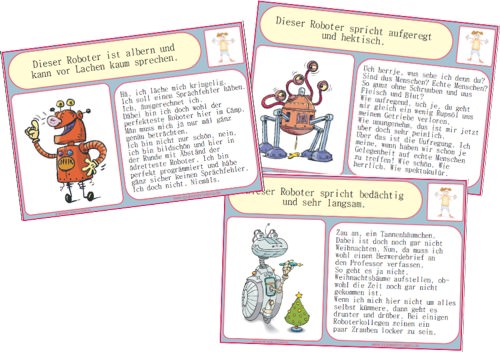 Dieser Roboter ist albern und
kann vor Lachen kaum sprechen.
Ha, ich lache mich kringelig.
Ich soll einen Sprachfehler haben.
Ich, ausgerechnet ich.
Dabei bin ich doch wohl der
perfekteste Roboter hier im Camp.
Man muss mich ja nur mal ganz
genau betrachten.
Ich bin nicht nur schön, nein,
ich bin bildschön und hier in
der Runde mit Abstand der
adretteste Roboter. Ich bin
perfekt programmiert und habe
ganz sicher keinen Sprachfehler.
Ich doch nicht. Niemals.
Dieser Roboter spricht aufgeregt
und hektisch.
Uch herrje, was sehe ich denn da?
Sind das Menschen? Echte Menschen?
So ganz ohne Schrauben und aus
Fleisch und Blut?
Wie aufregend, uch je, da geht
mir gleich ein wenig Rapsöl aus
meinem Getriebe verloren.
Wie unangenehm, das ist mir jetzt
aber doch sehr peinlich.
Aber das ist die Aufregung. Ich
meine, wann haben wir schon je
Gelegenheit auf echte Menschen
zu treffen! Wie schön. Wie
herrlich. Wie spektakulär.
Dieser Roboter spricht bedächtig
und sehr langsam.
Zau an, ein Tannenbäumchen.
Dabei ist doch noch gar nicht
Weihnachten. Nun, da muss ich
wohl einen Bezwerdebrief an
den Professor verfassen.
So geht es ja nicht.
Weihnachtsbäume aufstellen, ob-
wohl die Zeit noch gar nicht
gekommen ist.
Wenn ich mich hier nicht um alles
selbst kümmere, dann geht es
drunter und drüber. Bei einigen
Roboterkollegen zeinen ein
paar Zrauben locker zu sein.